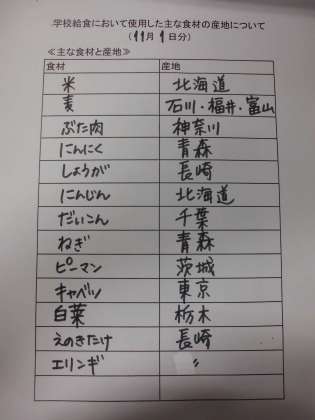 学校給食において使用した主な食材の産地について
(11月1日分)
≪主な食材と産地≫
食材 産地
米 北海道
麦 石川・福井・富山
ぶた肉 神奈川
にんにく 青森
しょうが 長崎
にんじん 北海道
だいこん 千葉
ねぎ 青森
ピーマン 茨城
キャベツ 東京
白菜 栃木
えのきたけ 長崎
エリンギ 〃